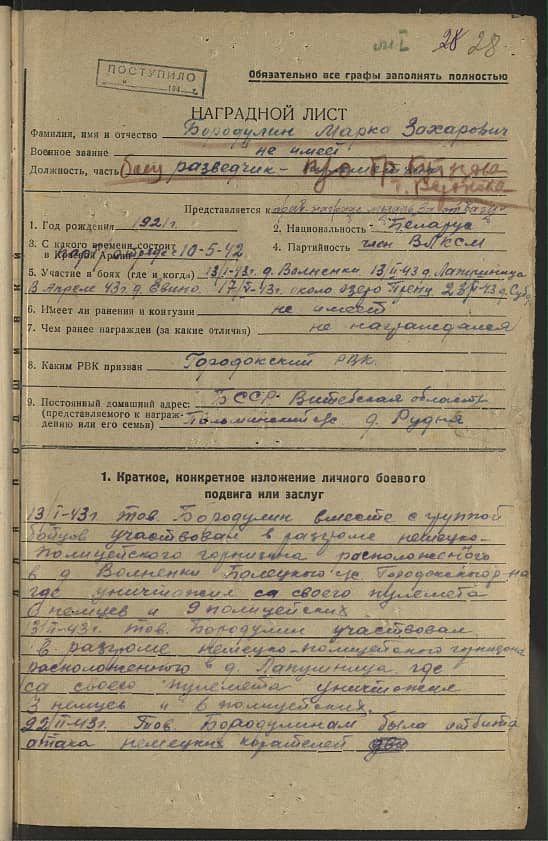 28 28
ПОСТУПИЛО
194 г.
Обязательно все графы заполнять полностью
НАГРАДНОЙ ЛИСТ
Фамилия, имя и отчество Бородулин Марка Захарович
Военное звание не имеет
Должность, часть боец разведчик-
Представляется к
1. Год рождения 1921г. 2. Национальность - "Беларус"
3. С какого времени состоит в Красной Армии 10-5-42 4. Партийность член ВЛКСМ
5. Участие в боях (где и когда) д. Волненки д. Лапушница
В Апреле 43г д. Евино. около озеро
6. Имеет ли ранения и контузии не имеет
7. Чем ранее награжден (за какие отличия) не награждался
8. Каким РВК призван Городокский РВК.
9. Постоянный домашний адрес: БССР-Витебская область
(представляемого к награж-
дению или его семьи) д. Рудня
1. Краткое, конкретное изложение личного боевого
подвига или заслуг
тов. Бородулин вместе с группой
бойцов участвовал в разгроме немецко-
полицейского горнизона расположеного
в д Волненки Городокского р-на
где уничтожил са своего пулемета
6 немцев и 9 полицейских
тов. Бородулин участвовал
в разгроме немецко-полицейского горнизона
расположенного в д. Лапушница где
са своего пулемета уничтожил
3 немцев и 6 полицейских.
Тов. Бородулинам была отбита
атака немецких корателей